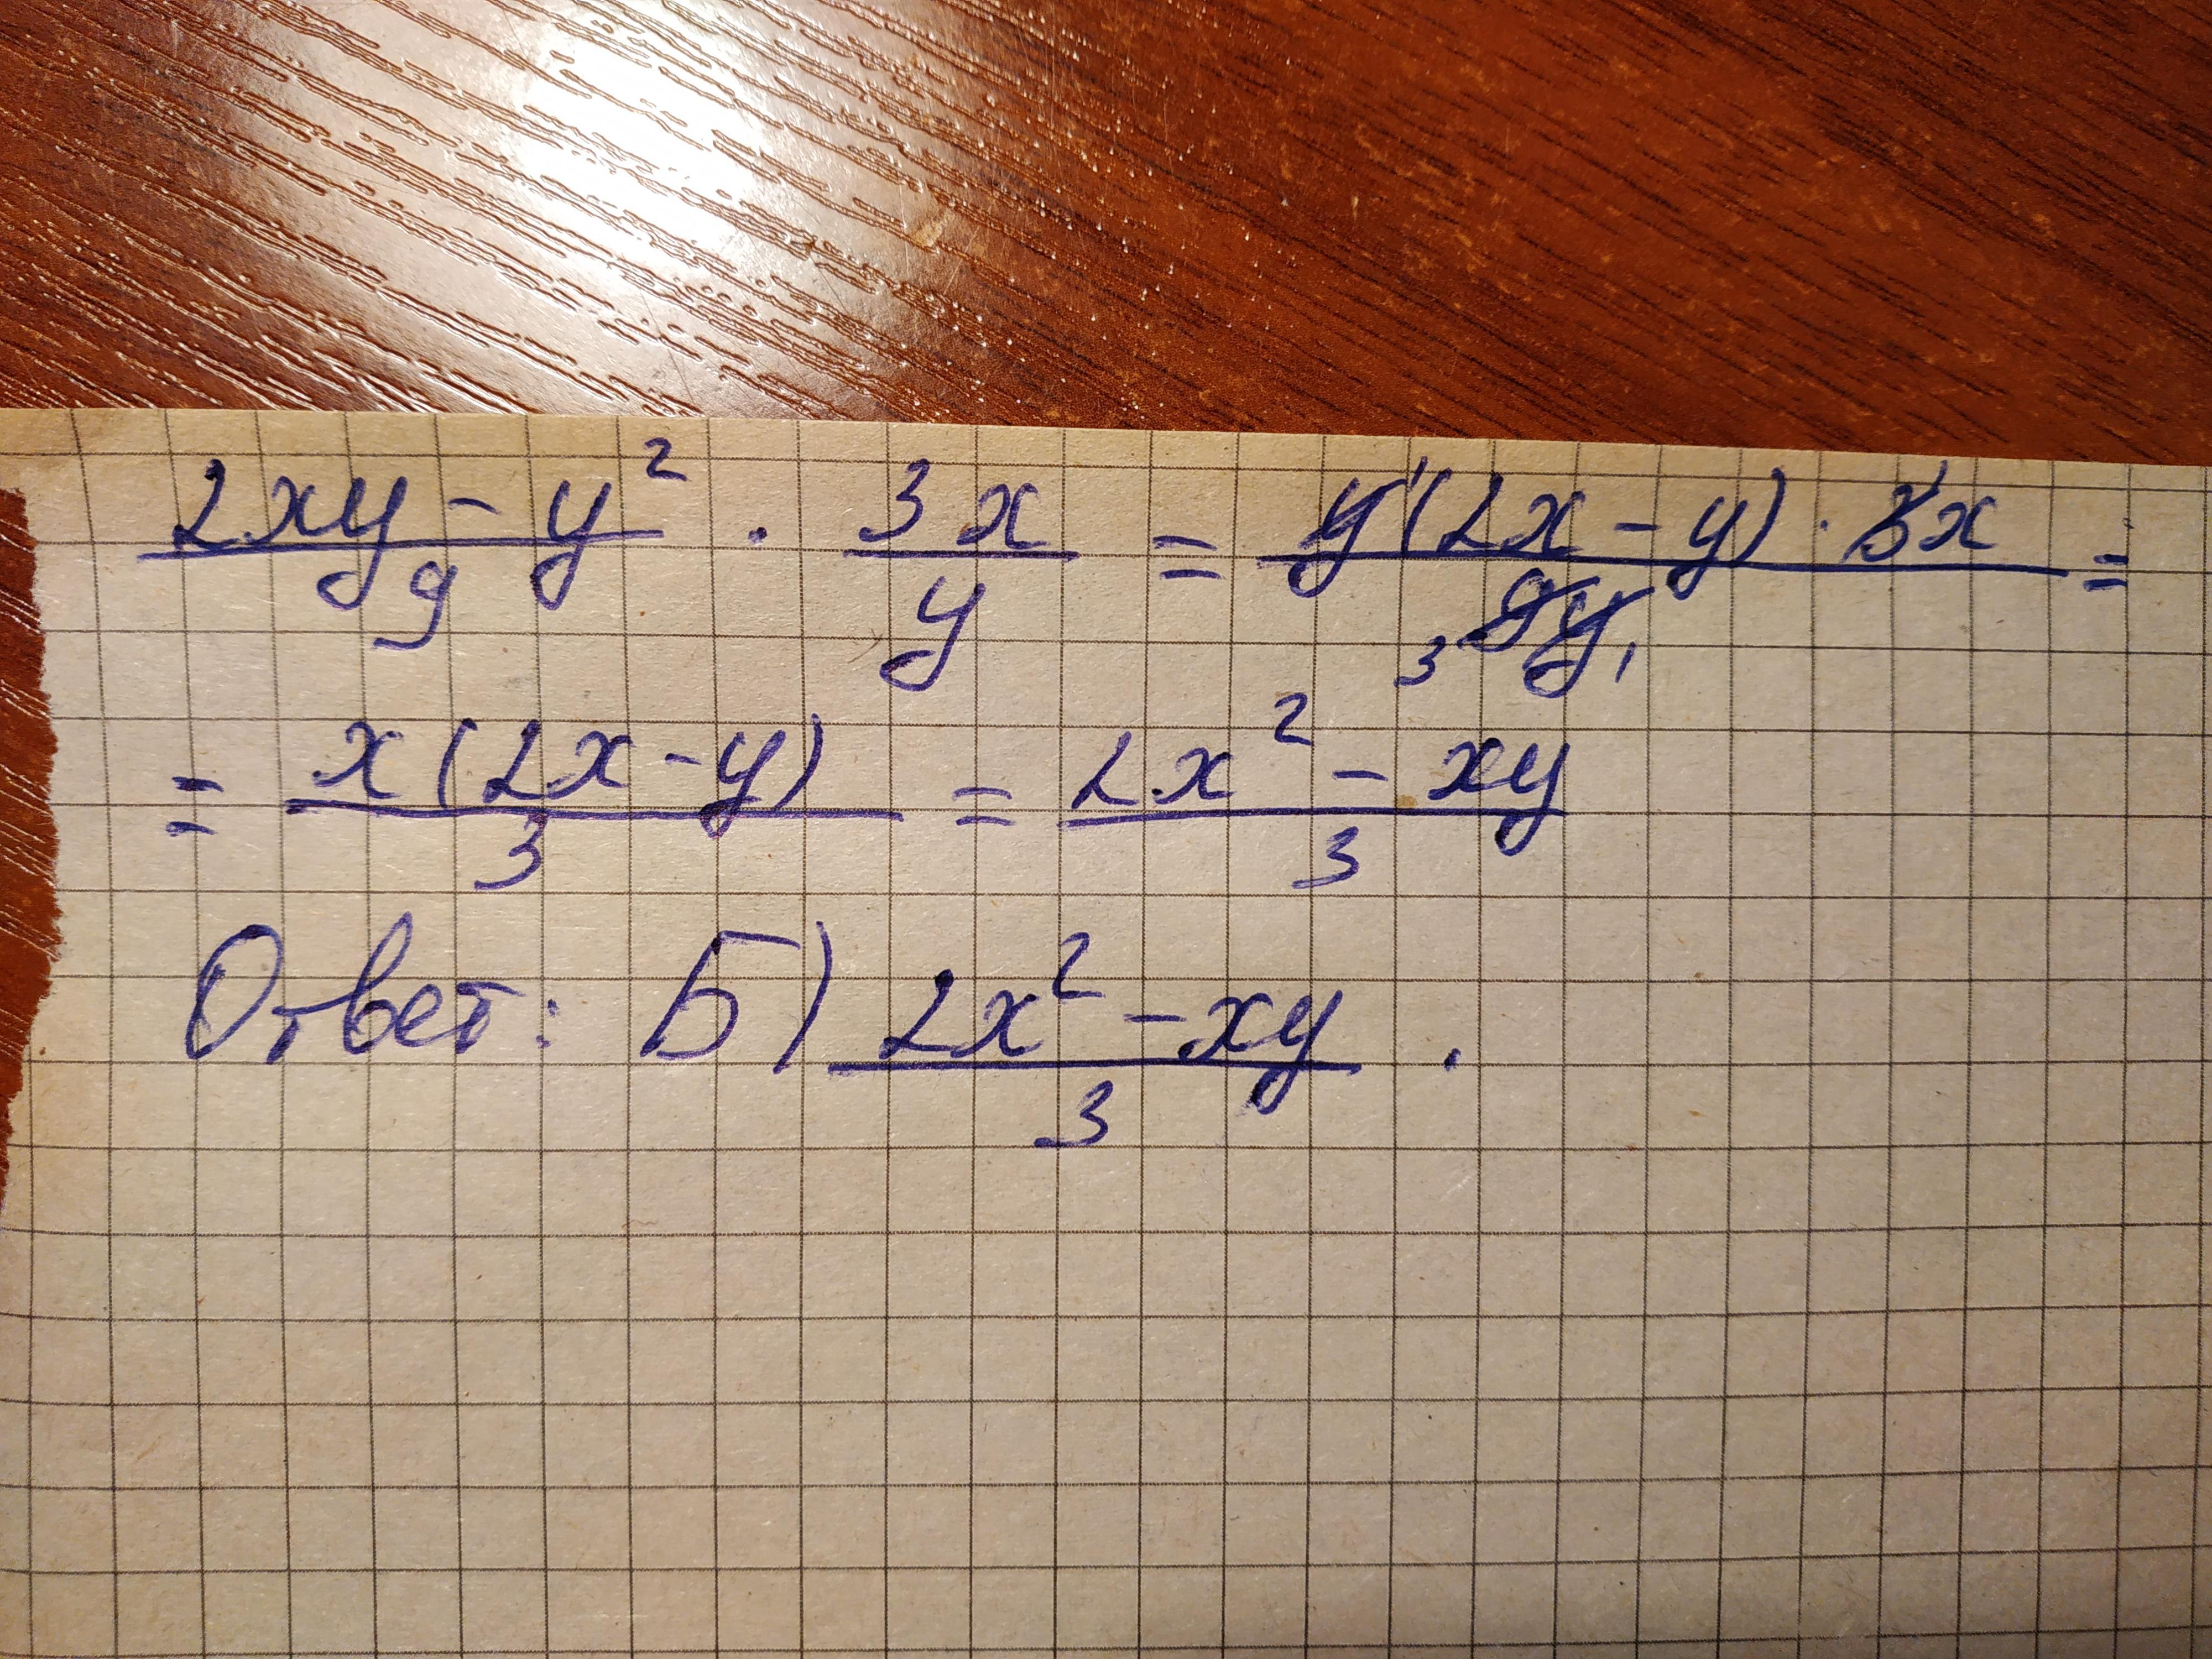 (2xy - y²)/9 · 3x/y = y¹(2x - y) · 3¹x / 3 9y₁ =
= x(2x - y)/3 = (2x² - xy)/3
Ответ: Б) (2x² - xy)/3 .